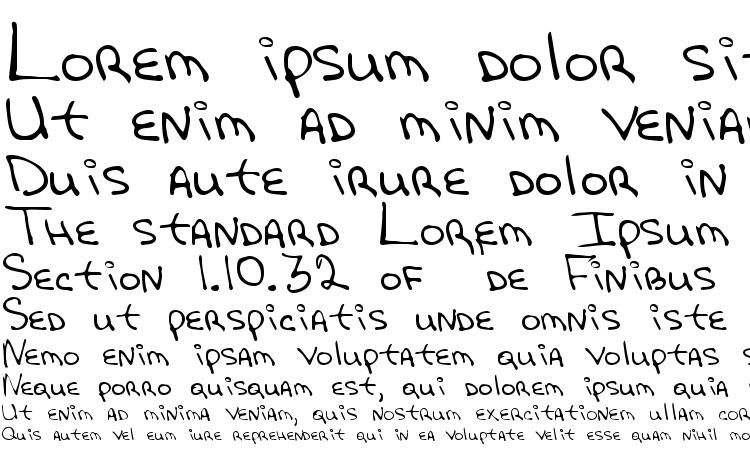 Lorem ipsum dolor sit
Ut enim ad minim veniam
Duis aute irure dolor in
The standard Lorem Ipsum
Section 1.10.32 of  de Finibus
Sed ut perspiciatis unde omnis iste
Nemo enim ipsam voluptatem quia voluptas s
Neque porro quisquam est, qui dolorem ipsum quia
Ut enim ad minima veniam, quis nostrum exercitationem ullam cor
Quis autem vel eum iure reprehenderit qui in ea voluptate velit esse quam nihil mo